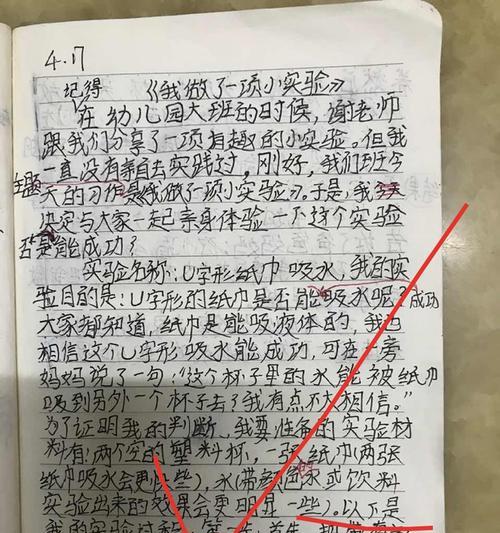 4.17
记得 《我做了一项小实验》
在幼儿园大班的时候，谢老师
跟我们分享了一项有趣的小实验。但我
一直没有亲自去实践过，刚好，我们班今
天的习作主题是《我做了项小实验》。于是，我
决定与大家一起亲身体验一下这个实验
是否能成功？
实验名称：U字形纸巾吸水，我的实
验目的是：U字形的纸巾是否能成功吸水呢？
大家都知道，纸巾是能吸液体的，我也
相信这个U字形吸水能成功，可在一旁
妈妈说了一句：“这个杯子里的水能被纸巾
吸到另外一个杯子去？我有点不大相信。”
为了证明我的判断，我要准备的实验材
料有：两个空的塑料杯，一张纸巾（两张
纸巾吸水会更快些），水（带颜色的水或饮料
实验出来的效果会更明显一些）。以下是
我的实验过程：第一步：首先，把